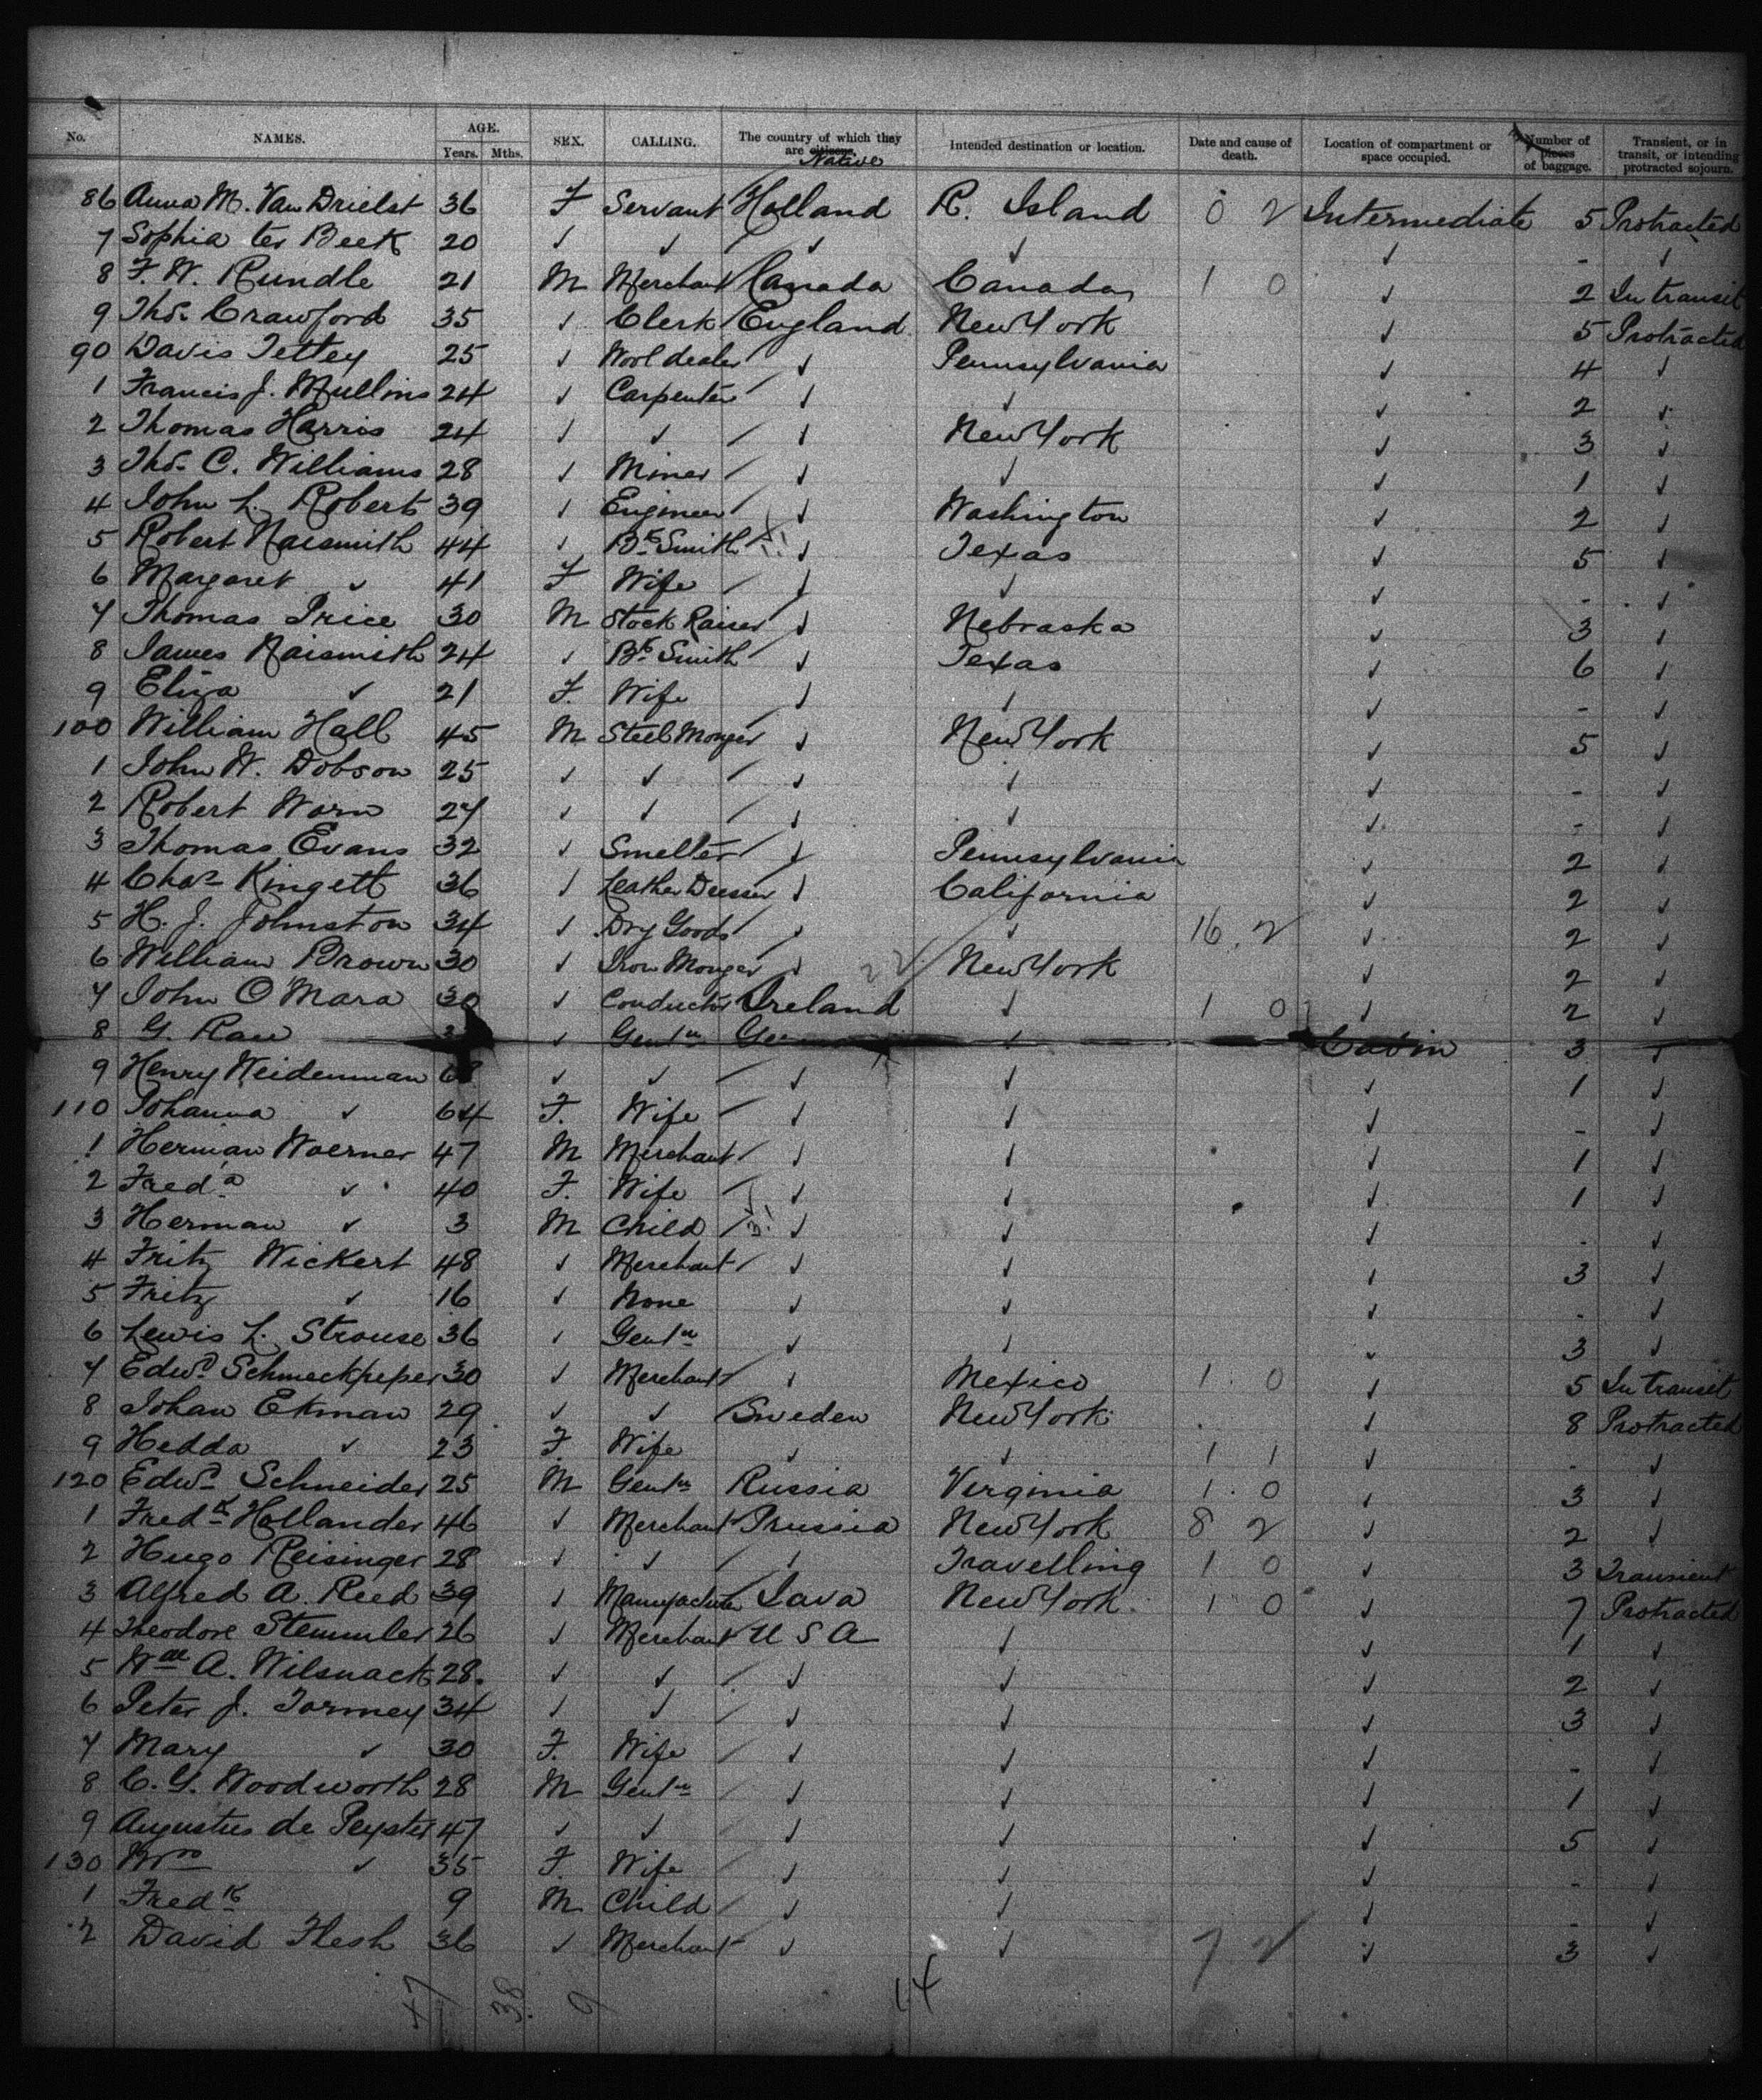 No. NAMES. AGE. Years. Mths. SEX. CALLING. The country of which they are citizens. Native Intended destination or location. Date and cause of death. Location of compartment or space occupied. Number of pieces of baggage. Transient, or in transit, or intending protracted sojourn.
86 Anna M. Van Drielst 36 F Servant Holland R. Island 0 2 Intermediate 5 Protracted
7 Sophia ter Beek 20 ✓ ✓ ✓ ✓ ✓ - ✓
8 F. W. Rundle 21 M Merchant Canada Canada 1 0 ✓ 2 In transit
9 Thos. Crawford 35 ✓ Clerk England New York ✓ 5 Protracted
90 Davis Tettey 25 ✓ Wool dealer ✓ Pennsylvania ✓ 4 ✓
1 Francis J. Mullins 24 ✓ Carpenter ✓ ✓ ✓ 2 ✓
2 Thomas Harris 24 ✓ ✓ ✓ New York ✓ 3 ✓
3 Thos. C. Williams 28 ✓ Miner ✓ ✓ ✓ 1 ✓
4 John L. Robert 39 ✓ Engineer ✓ Washington ✓ 2 ✓
5 Robert Naismith 44 ✓ Bk. Smith ✓ Texas ✓ 5 ✓
6 Margaret ✓ 41 F Wife ✓ ✓ ✓ - ✓
7 Thomas Price 30 M Stock Raiser ✓ Nebraska ✓ 3 ✓
8 James Naismith 24 ✓ Bk. Smith ✓ Texas ✓ 6 ✓
9 Eliza ✓ 21 F. Wife ✓ ✓ ✓ - ✓
100 William Hall 45 M Steel Monger ✓ New York ✓ 5 ✓
1 John W. Dobson 25 ✓ ✓ ✓ ✓ ✓ - ✓
2 Robert Worn 27 ✓ ✓ ✓ ✓ ✓ - ✓
3 Thomas Evans 32 ✓ Smelter ✓ Pennsylvania ✓ 2 ✓
4 Chas. Kingett 36 ✓ Leather Dresser ✓ California ✓ 2 ✓
5 H. J. Johnston 34 ✓ Dry Goods ✓ ✓ 16 2 ✓ 2 ✓
6 William Brown 30 ✓ Iron Monger ✓ New York ✓ 2 ✓
7 John O'Mara 30 ✓ Conductor Ireland ✓ 1 0 ✓ 2 ✓
8 G. Rau ✓ Gentn ✓ Cabin 3 ✓
9 Henry Weidenman ✓ ✓ ✓ ✓ ✓ 1 ✓
110 Johanna ✓ 64 F. Wife ✓ ✓ ✓ - ✓
1 Herman Woerner 47 M Merchant ✓ ✓ ✓ 1 ✓
2 Freda ✓ 40 F. Wife ✓ ✓ ✓ 1 ✓
3 Herman ✓ 3 M Child ✓ ✓ ✓ - ✓
4 Fritz Wickert 48 ✓ Merchant ✓ ✓ ✓ 3 ✓
5 Fritz ✓ 16 ✓ None ✓ ✓ ✓ - ✓
6 Lewis L. Strouse 36 ✓ Gentn ✓ ✓ ✓ 3 ✓
7 Edwd. Schmeckpeper 30 ✓ Merchant ✓ Mexico 1 0 ✓ 5 In transit
8 Johan Ekman 29 ✓ ✓ Sweden New York ✓ 8 Protracted
9 Hedda ✓ 23 F. Wife ✓ ✓ 1 1 ✓ - ✓
120 Edwd. Schneider 25 M Gentn Russia Virginia 1 0 ✓ 3 ✓
1 Fredk. Hollander 46 ✓ Merchant Prussia New York 8 2 ✓ 2 ✓
2 Hugo Reisinger 28 ✓ ✓ ✓ Travelling 1 0 ✓ 3 Transient
3 Alfred A. Reed 39 ✓ Manufacturer Java New York 1 0 ✓ 7 Protracted
4 Theodore Stemmler 26 ✓ Merchant U S A ✓ ✓ 1 ✓
5 Wm. A. Wilsnack 28. ✓ ✓ ✓ ✓ ✓ 2 ✓
6 Peter J. Tormey 34 ✓ ✓ ✓ ✓ ✓ 3 ✓
7 Mary ✓ 30 F. Wife ✓ ✓ ✓ - ✓
8 C. G. Woodworth 28 M Gentn ✓ ✓ ✓ 1 ✓
9 Augustus de Peyster 47 ✓ ✓ ✓ ✓ ✓ 5 ✓
130 Mrs ✓ 35 F. Wife ✓ ✓ ✓ - ✓
1 Fredk. 9 M Child ✓ ✓ ✓ - ✓
2 David Flesh 36 ✓ Merchant ✓ ✓ 7 2 ✓ 3 ✓
47 38 9 14